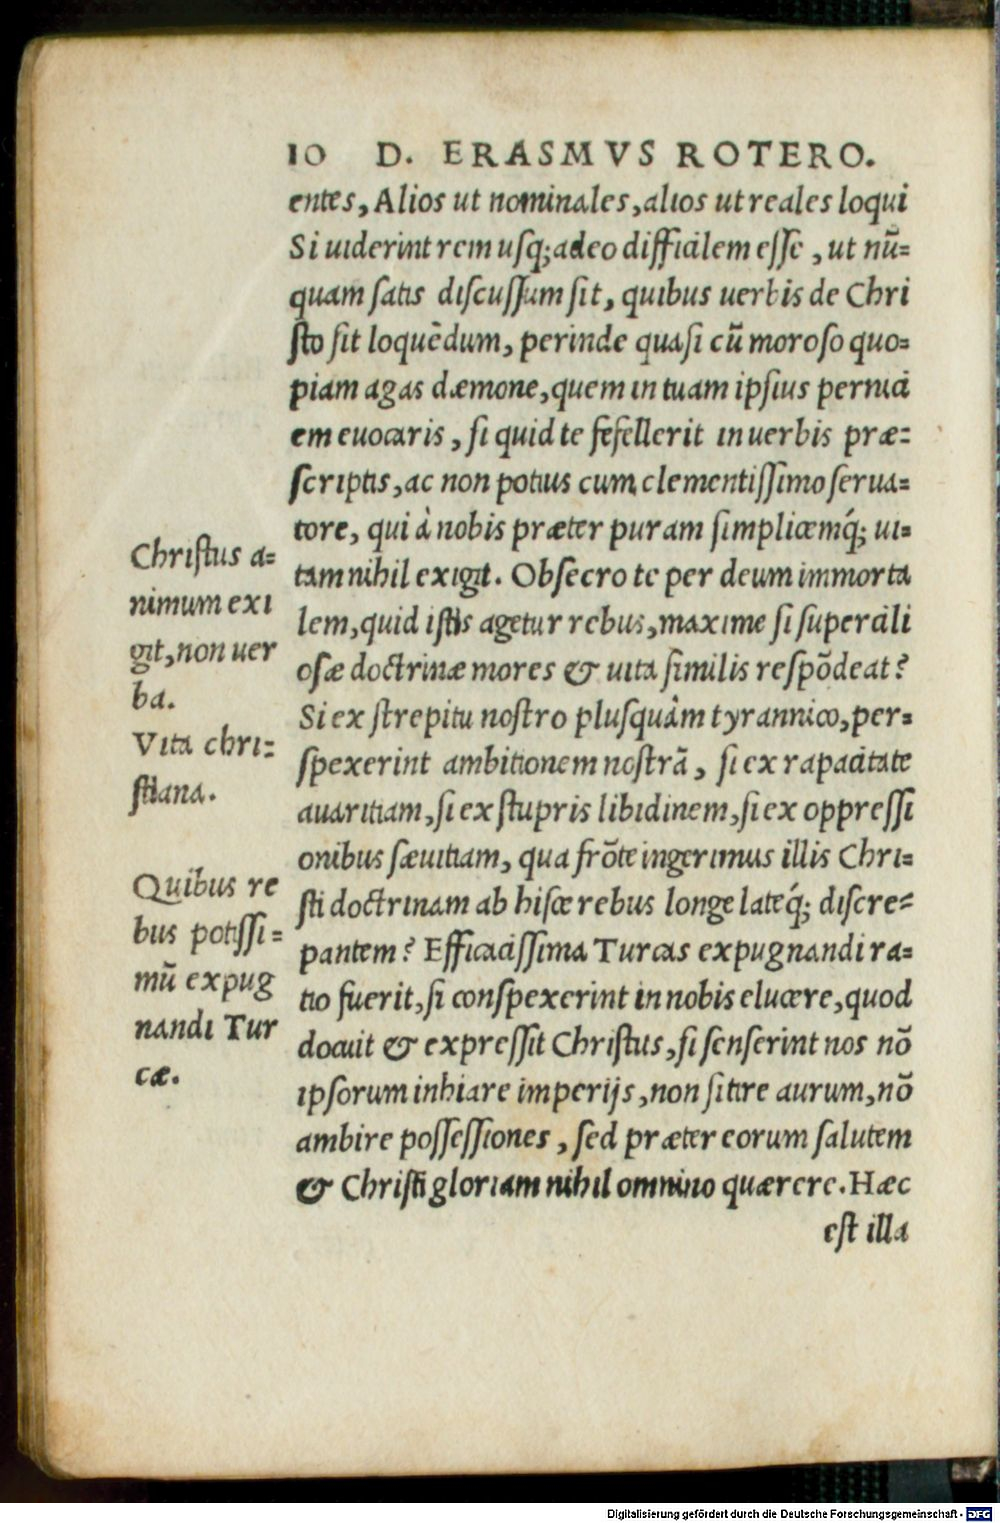 10 D. ERASMVS ROTERO.
entes, Alios ut nominales, alios ut reales loqui
Si uiderint rem usq; adeo difficilem esse, ut nũ=
quam satis discussum sit, quibus uerbis de Chri
sto sit loquẽdum, perinde quasi cũ moroso quo=
piam agas dæmone, quem in tuam ipsius pernici
em euocaris, si quid te fefellerit in uerbis præ=
scriptis, ac non potius cum clementissimo serua=
tore, qui à nobis præter puram simplicemq́; ui=
tam nihil exigit. Obsecro te per deum immorta
lem, quid istis agetur rebus, maxime si supercili
osæ doctrinæ mores & uita similis respõdeat?
Si ex strepitu nostro plusquàm tyrannico, per=
spexerint ambitionem nostrã, si ex rapacitate
auaritiam, si ex stupris libidinem, si ex oppressi
onibus sæuitiam, qua frõte ingerimus illis Chri=
sti doctrinam ab hisce rebus longe lateq́; discre=
pantem? Efficacissima Turcas expugnandi ra=
tio fuerit, si conspexerint in nobis elucere, quod
docuit & expressit Christus, si senserint nos nõ
ipsorum inhiare imperijs, non sitire aurum, nõ
ambire possessiones, sed præter eorum salutem
& Christi gloriam nihil omnino quærere. Hæc
est illa
Christus a=
nimum exi
git, non uer
ba.
Vita chri=
stiana.
Quibus re
bus potissi=
mũ expug
nandi Tur
cæ.
Digitalisierung gefördert durch die Deutsche Forschungsgemeinschaft - DFG